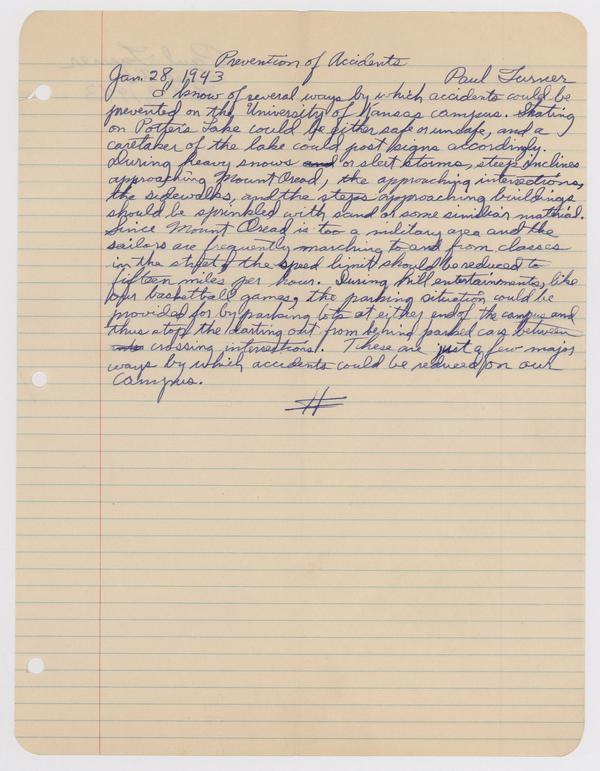 Prevention of Accidents
Jan. 28, 1943 Paul Turner
I know of several ways by which accidents could be
prevented on the University of Kansas campus. Skating
on Potter's Lake could be either safe or unsafe, and a
caretaker of the lake could post signs accordingly.
During heavy snows and or sleet storms, steep inclines
approaching Mount Oread, the approaching intersections,
the sidewalks, and the steps approaching buildings
should be sprinkled with sand or some similiar material.
Since Mount Oread is too a military area and the
sailors are frequently marching to and from classes
in the street, the speed limit should be reduced to
fifteen miles per hour. During hill entertainments, like
our basketball games, the parking situation could be
provided for by parking lots at either end of the campus and
thus stop the darting out from behind parked cars between
crossing intersections. These are just a few major
ways by which accidents could be reduced on our
campus.
#